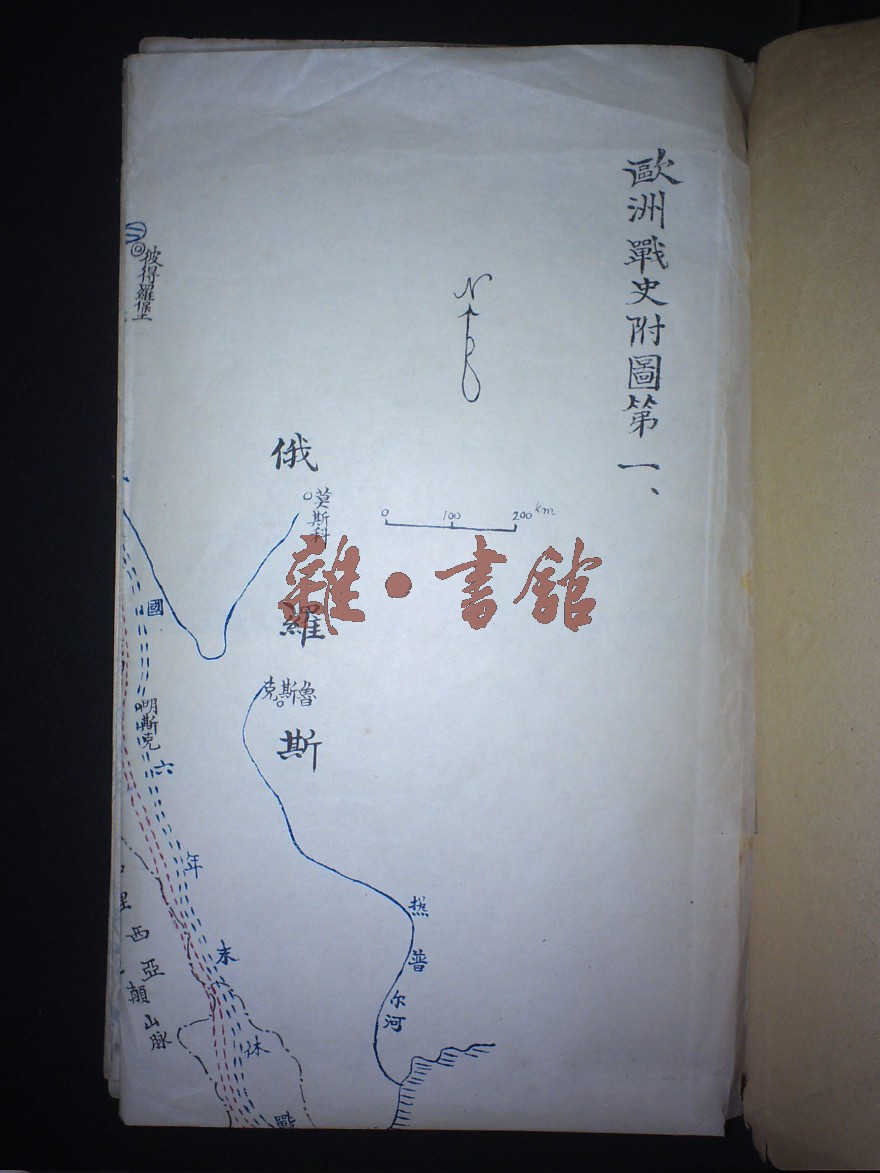 歐洲戰史附圖第一、
N
0 100 200 km
俄羅斯
莫斯科
魯斯斯克
彼得羅堡
國六年末休戰
明斯克
普尔河
西亞
山脉
雜·書館